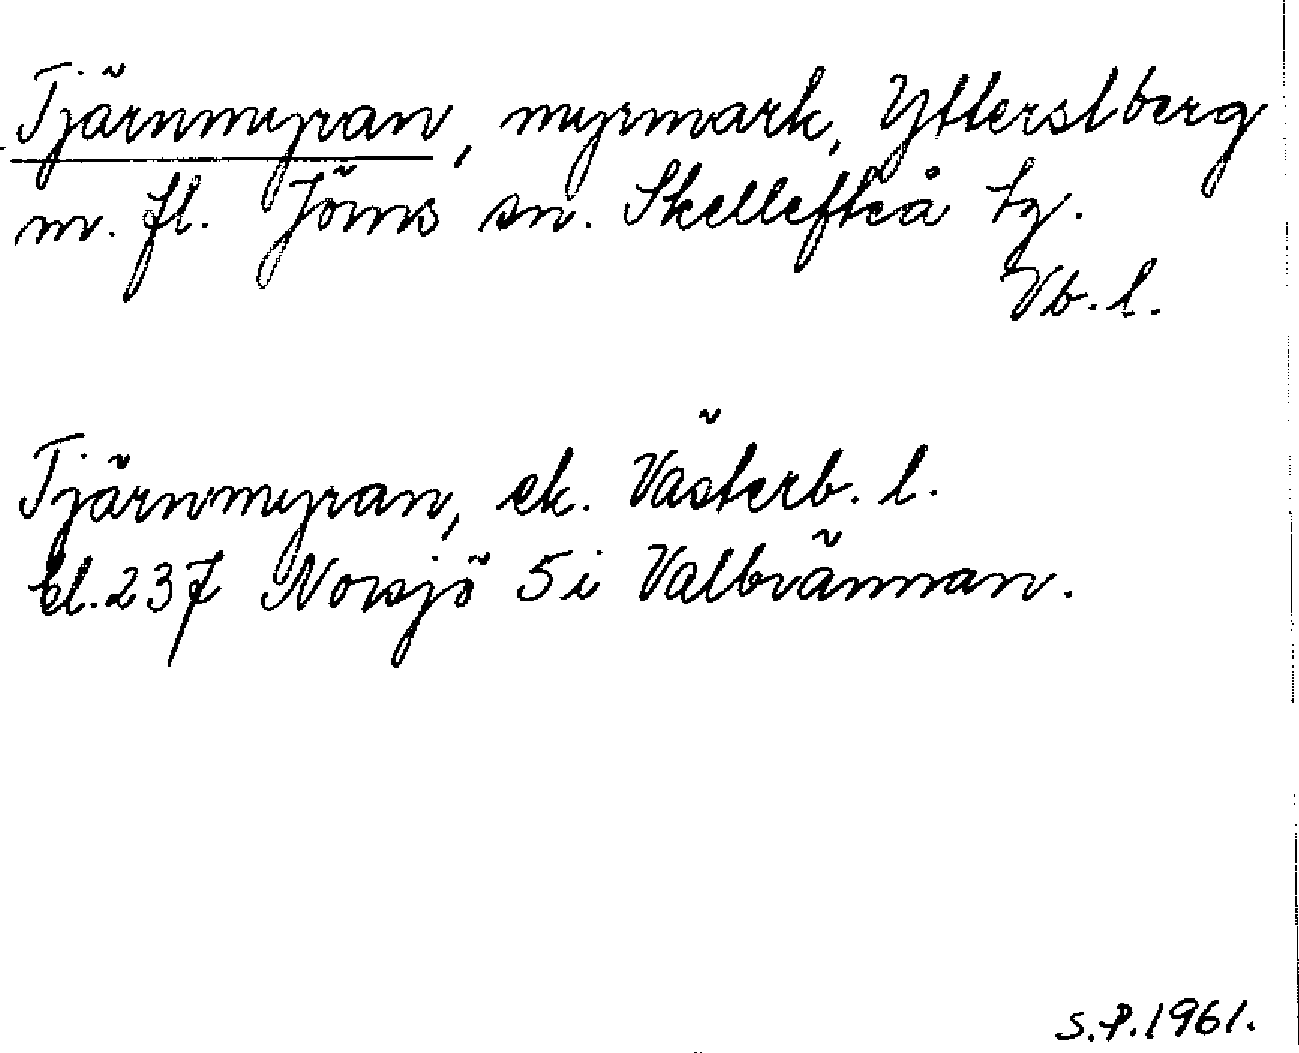 Tjärnmyran, myrmark, Ytterstberg
m. fl. Jörns sn. Skellefteå tg.
Vb. l.
Tjärnmyran, ek. Västerb. l.
bl. 237 Norsjö 5i Valbrännan.
S.P. 1961.